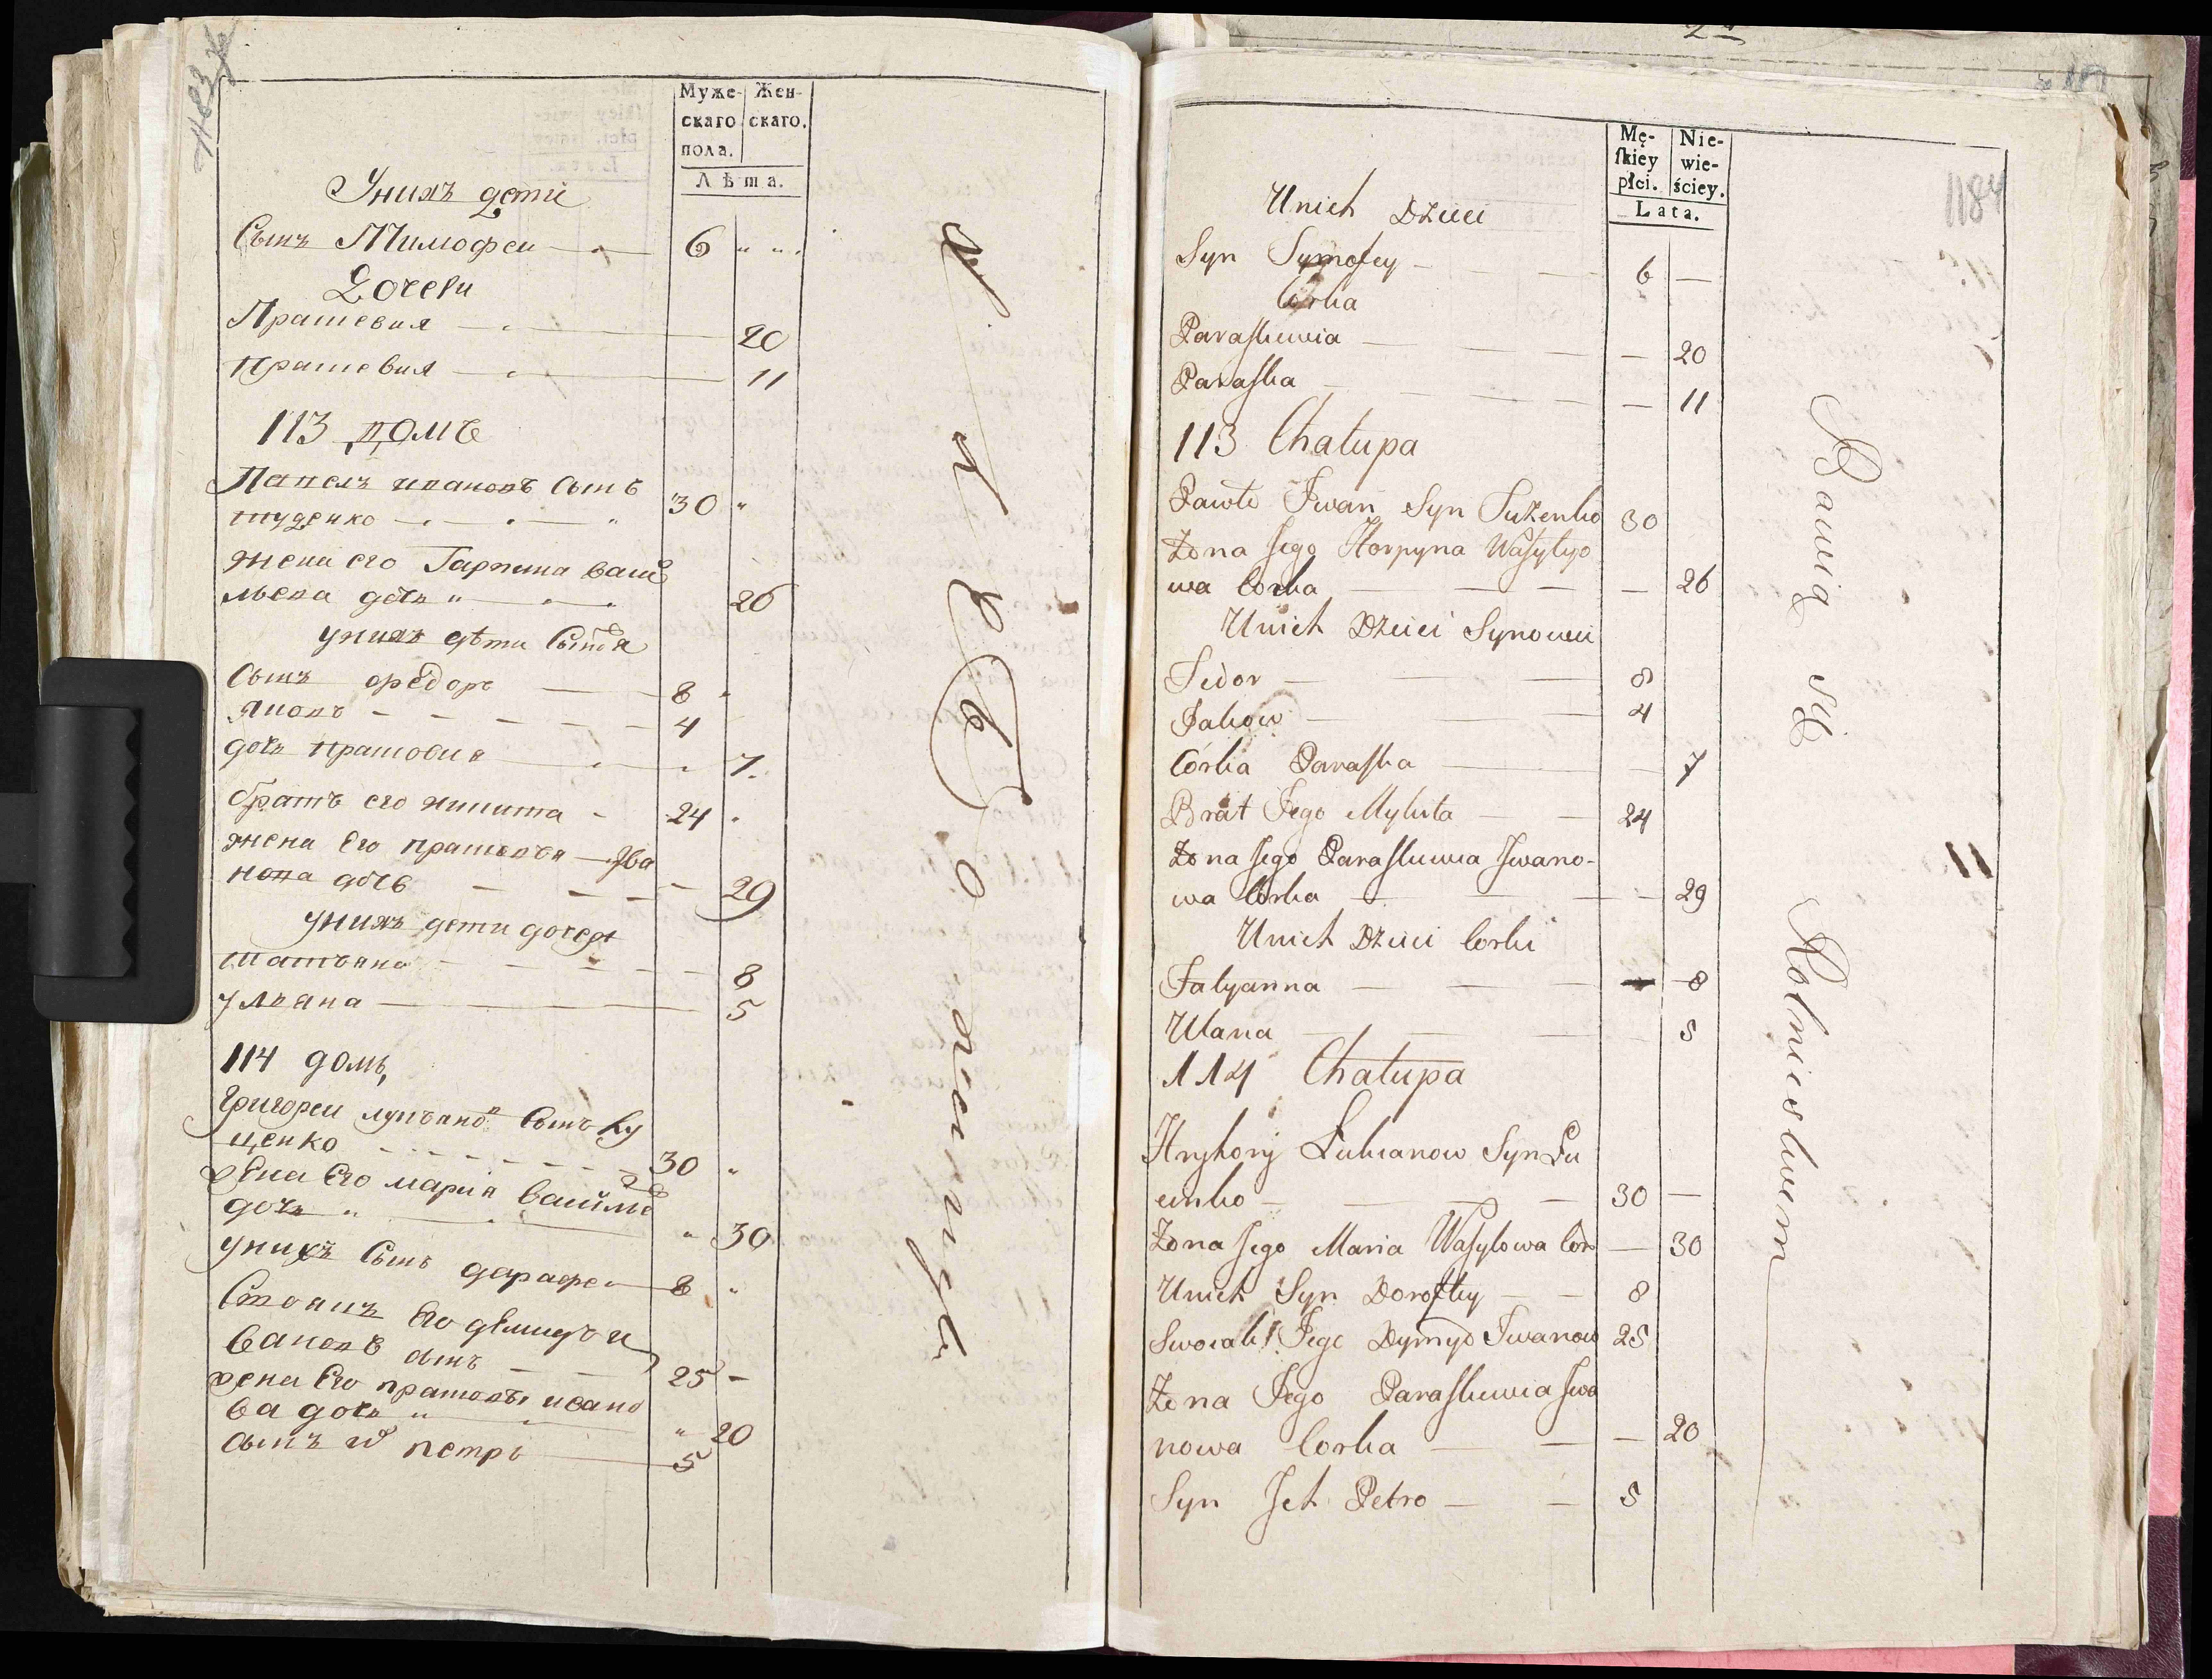 Муже-
скаго
пола.
Жен-
скаго.
Лѣта.
Унихъ дети
Сынъ Тимофеи 6
Дочери
Прасковия 20
Прасковия 11
113 домъ
Павелъ ивановъ Сынъ
30
жена его Гарпина васи
льева дочь 26
унихъ дѣти Сыновя
Сынъ Федоръ 8
Яковъ 4
дочь прасковия 7
братъ его никита 24
жена Его прасковя Ива
нова дочь 29
унихъ дети дочери
татьяна 8
ульяна 5
114 домъ
Григореи лукьяновъ Сынъ Ку
ценко 30
жена Его мария василье
дочь 30
унихъ Сынъ дарафеи 8
Его демидъ и
вановъ сынъ 25
жена Его прасковья ивано
ва дочь 20
сынъ петръ 5
Mę-
skiey
płci.
Nie-
wie-
ściey.
Lata.
1184
Unich Dzieci
Syn Tymofey 6
Corka
Paraskiewia 20
Paraska 11
113 Chałupa
Pawło Iwan Syn 30
Żona Jego Horpyna Wasylyo
wa Corka 26
Unich Dzieci Synowei
Fedor 8
Jakow 4
Córka Paraska 7
Brat Jego Mykita 24
Żona Jego Paraskiewia Iwano-
wa Corka 29
Unich Dzieci Corki
Tatyanna 8
Ulana 5
114 Chałupa
Hryhory Lukianow Syn Ku
cenko 30
Żona Jego Maria Wasylowa Cor 30
Unich Syn Doroftey 8
Swoiak Jego Dymyd Iwanow 25
Żona Jego Paraskiewia Iwa
nowa Corka 20
Syn Ich Petro 5
Bawią się Rolnictwem